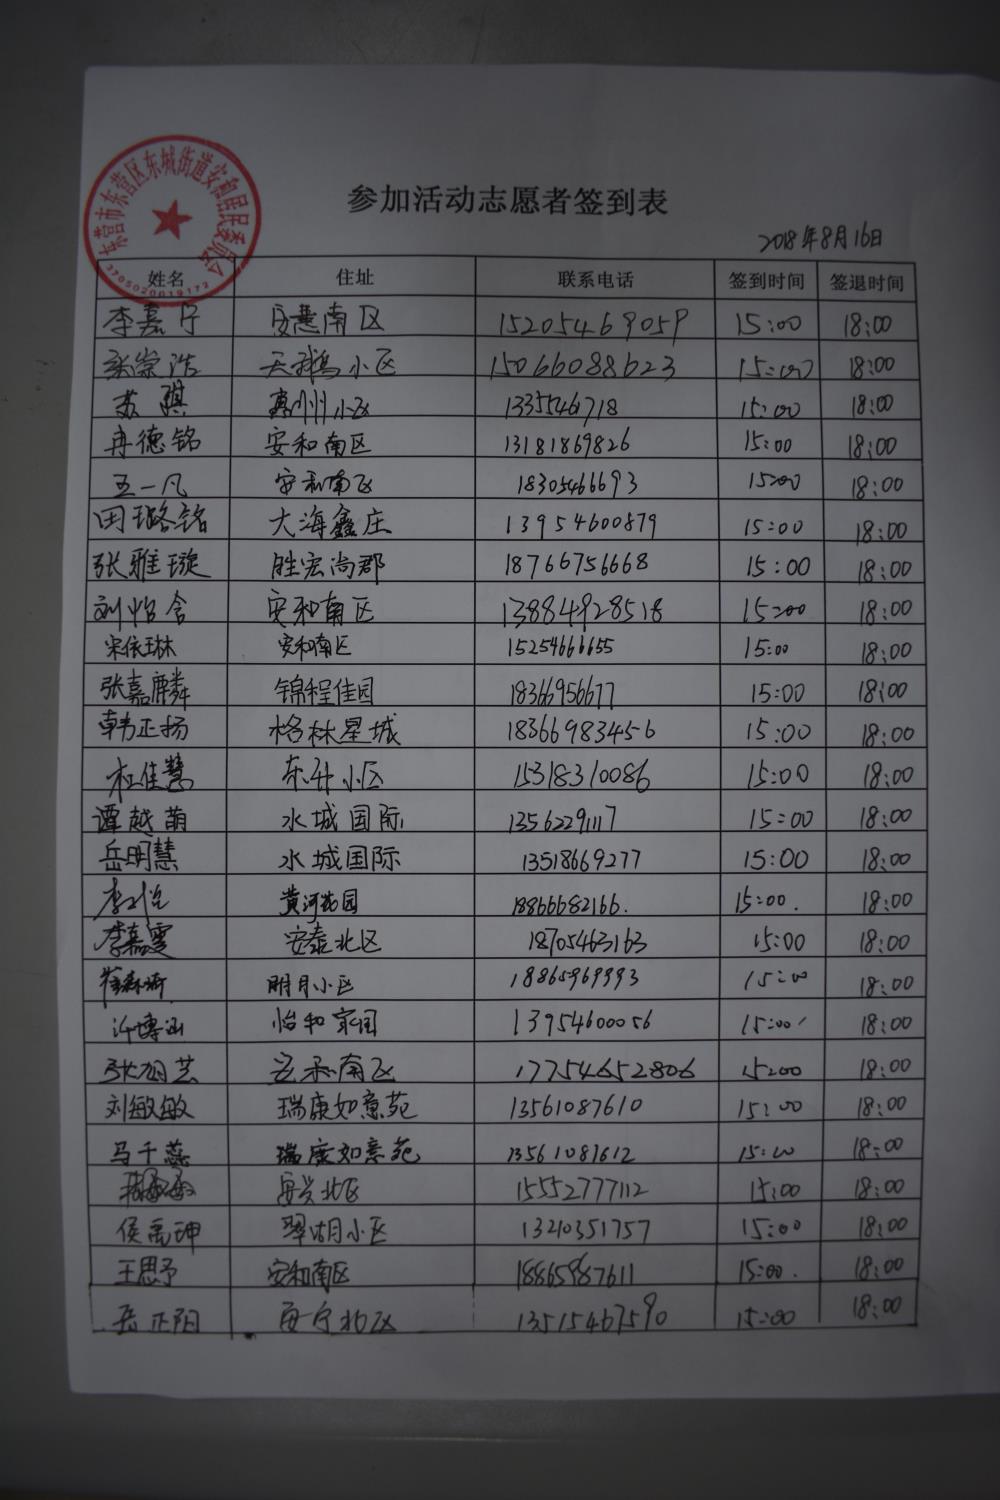 东营市东营区东城街道安和居民委员会
3705020019172
参加活动志愿者签到表
2018年8月16日
姓名 住址 联系电话 签到时间 签退时间
李嘉 安慧南区 15205469059 15:00 18:00
张崇浩 天鹅小区 15066088623 15:00 18:00
苏骐 惠州小区 1335546718 15:00 18:00
冉德铭 安和南区 13181869826 15:00 18:00
王一凡 安和南区 18305466693 15:00 18:00
田璐铭 大海鑫庄 13954600879 15:00 18:00
张雅璇 胜宏尚郡 18766756668 15:00 18:00
刘怡含 安和南区 13884928518 15:00 18:00
宋依琳 安和南区 15254666655 15:00 18:00
张嘉麟 锦程佳园 18366956677 15:00 18:00
韩正扬 格林星城 18366983456 15:00 18:00
杜佳慧 东升小区 15318310086 15:00 18:00
谭越萌 水城国际 13562291117 15:00 18:00
岳明慧 水城国际 13518669277 15:00 18:00
李 黄河花园 18866682166. 15:00. 18:00
李嘉雯 安泰北区 18705463163 15:00 18:00
崔 明月小区 18865969993 15:00 18:00
博涵 怡和家园 13954600056 15:00 18:00
张旭芸 安和南区 17754652806 15:00 18:00
刘敏敏 瑞康如意苑 13561087610 15:00 18:00
马千蕊 瑞康如意苑 13561087612 15:00 18:00
安兴北区 15552777112 15:00 18:00
侯禹坤 翠湖小区 13210351757 15:00 18:00
王思予 安和南区 18865987611 15:00. 18:00
岳正阳 安宁北区 13515467590 15:00 18:00